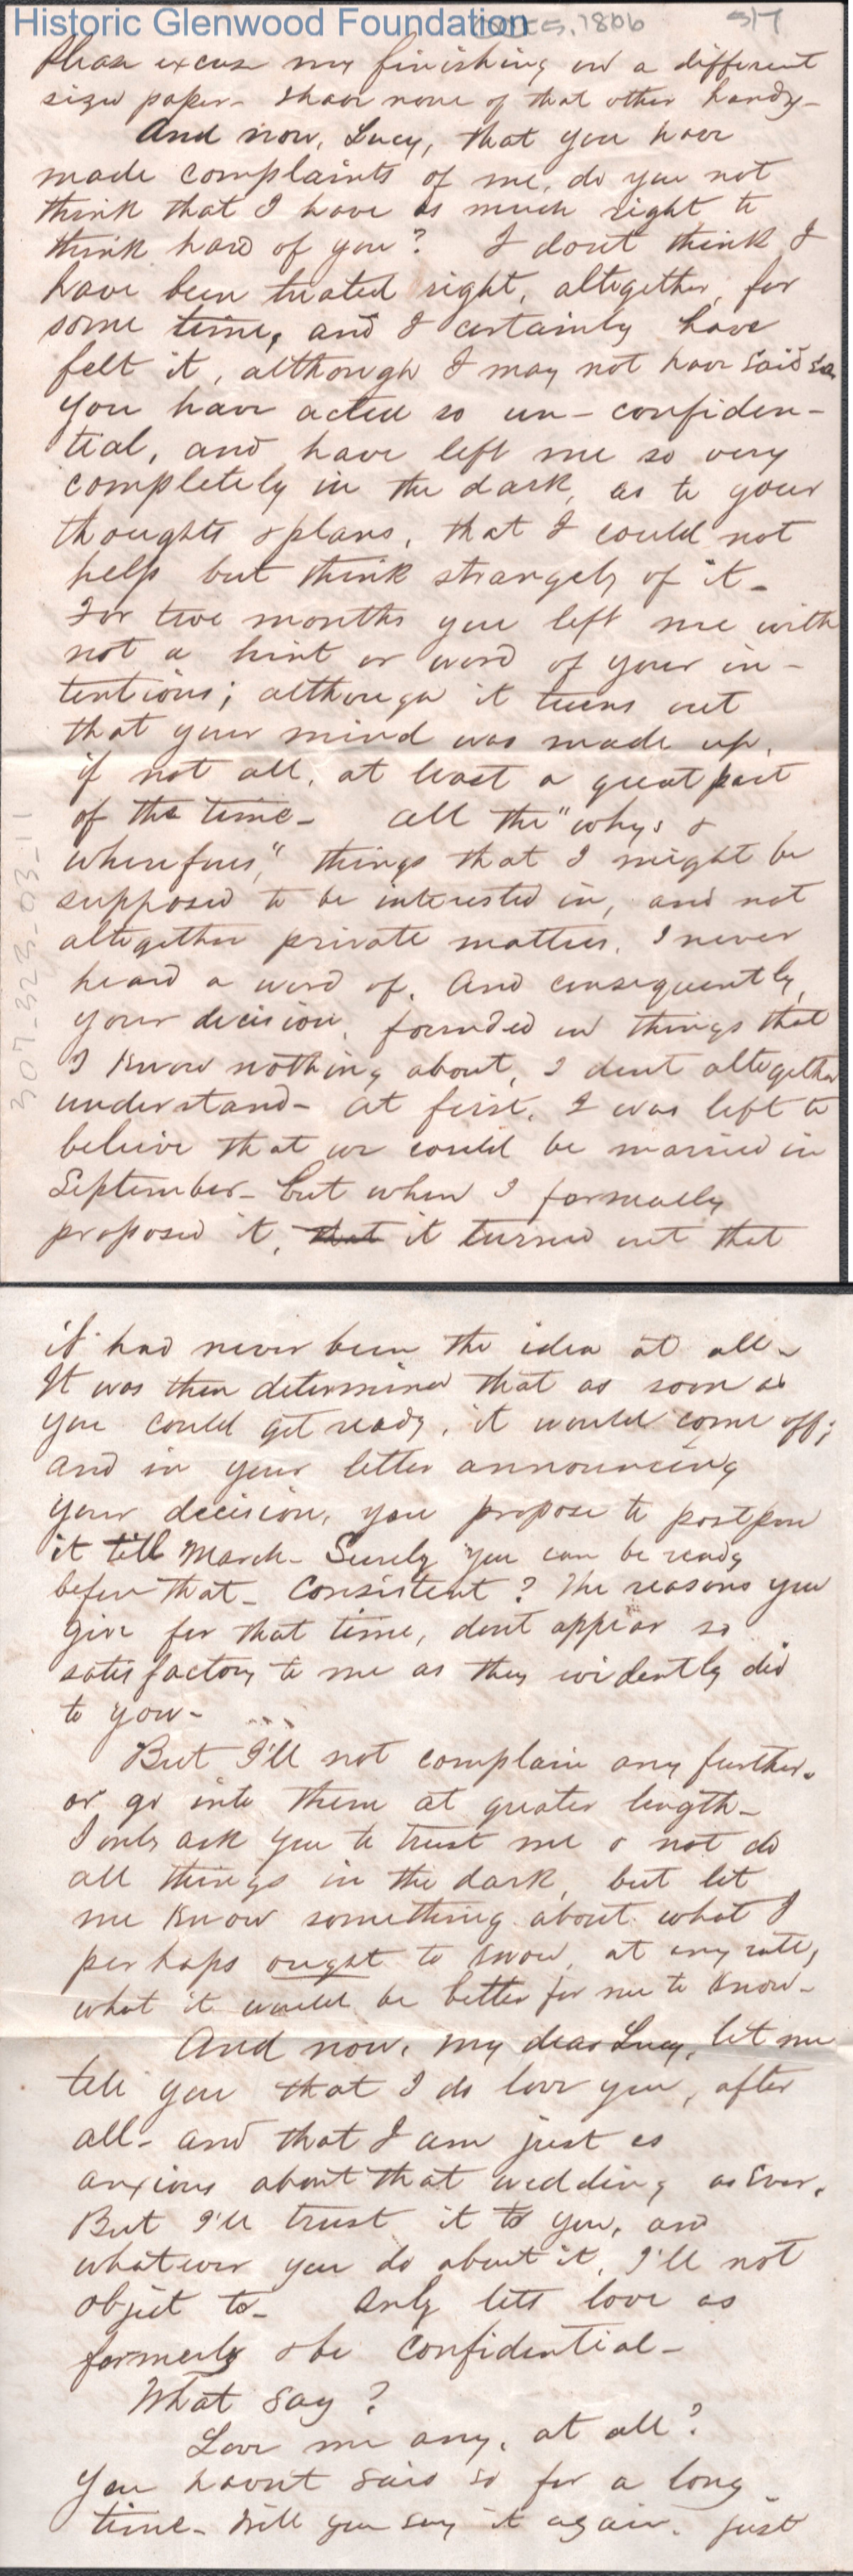 Historic Glenwood Foundation 5, 1866 5/7
Please excuse my finishing on a different
sized paper- I have none of that other handy-
And now, Lucy, that you have
made complaints of me, do you not
think that I have as much right to
think hard of you? I dont think I
have been treated right, altogether, for
some time, and I certainly have
felt it, although I may not have said so.
You have acted so un-confiden-
tial, and have left me so very
completely in the dark, as to your
thoughts & plans, that I could not
help but think strangely of it-
For two months you left me with
not a hint or word of your in-
tentions; although it turns out
that your mind was made up,
if not all, at least a great part
of the time- all the "whys &
wherefores," things that I might be
supposed to be interested in, and not
altogether private matters, I never
heard a word of. And consequently,
your decision, founded on things that
I know nothing about, I dont altogether
understand- At first, I was left to
believe that we could be married in
September- but when I formally
proposed it, that it turned out that
307-323-03-11
it had never been the idea at all-
It was then determined that as soon as
you could get ready, it would come off;
and in your letter announcing
your decision, you propose to postpone
it till March- Surely you can be ready
before that- Consistent? The reasons you
give for that time, dont appear so
satisfactory to me as they evidently did
to you- ...
But I'll not complain any further.
or go into them at greater length-
I only ask you to trust me & not do
all things in the dark, but let
me know something about what I
perhaps ought to know, at any rate,
what it would be better for me to know-
And now, my dear Lucy, let me
tell you that I do love you, after
all- and that I am just as
anxious about that wedding as ever.
But I'll trust it to you, and
whatever you do about it, I'll not
object to- Only lets love as
formerly & be confidential-
What say?
Love me any, at all?
You havnt said so for a long
time- Will you say it again, just